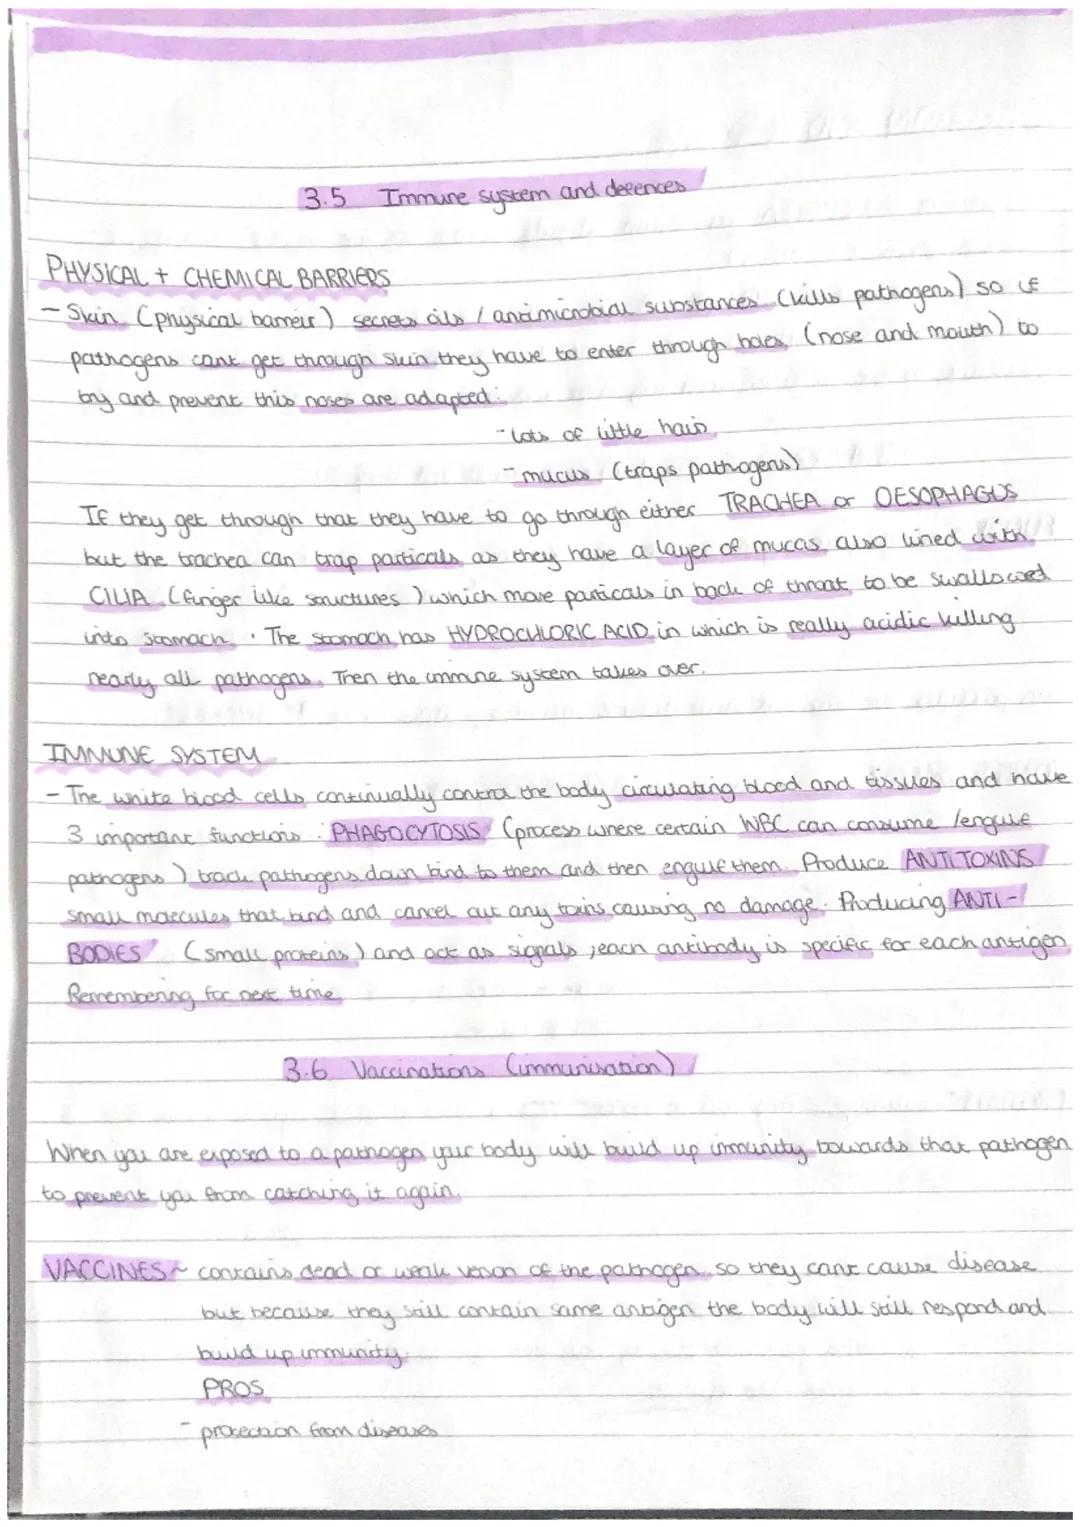 3.5 Immune system and defences
PHYSICAL + CHEMICAL BARRIERS
- Skin (physical barreir) secrets oils / antimicrobial substances (kills pathogens) so if
pathogens cant get through skin they have to enter through holes (nose and mouth) to
try and prevent this noses are adapted:
- lots of little hairs
- mucus (traps pathogens)
If they get through that they have to go through either TRACHEA or OESOPHAGUS
but the trachea can trap particals as they have a layer of mucas also lined with
CILIA (finger like structures) which move particals in back of throat to be swallowed
into stomach. The stomach has HYDROCHLORIC ACID in which is really acidic killing
nearly all pathogens. Then the immune system takes over.
IMMUNE SYSTEM
- The white blood cells continually control the body circulating blood and tissues and have
3 important functions: PHAGOCYTOSIS (process where certain WBC can consume / engulf
pathogens) track pathogens down bind to them and then engulf them. Produce ANTITOXINS
small molecules that bind and cancel out any toxins causing no damage. Producing ANTI-
BODIES (small proteins) and act as signals, each antibody is specific for each antigen
Remembering for next time
3.6 Vaccinations (immunisation)
When you are exposed to a pathogen your body will build up immunity towards that pathogen
to prevent you from catching it again.
VACCINES ~ contains dead or weak verson of the pathogen so they cant cause disease
but because they still contain same antigen the body will still respond and
build up immunity.
PROS
- protection from diseases